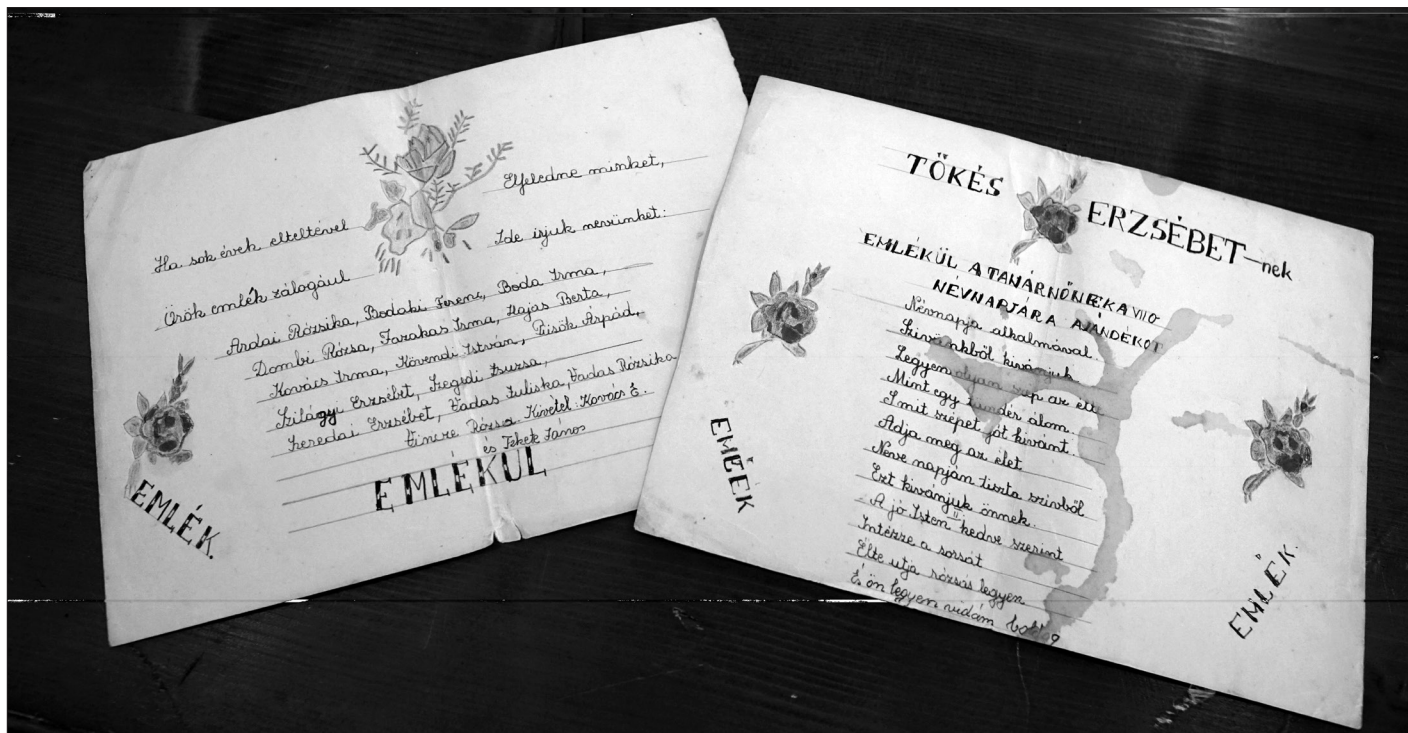 Ha sok évek elteltével Elfeledne minket,
Örök emlék zálogául Ide irjuk nevünket:
Ardai Rózsika, Bodaki Ferenc, Boda Irma,
Dombi Rózsa, Fazakas Irma, Hajas Berta,
Kovács Irma, Kövendi István, Püsök Árpád,
Szilágyi Erzsébet, Szegedi Zsuzsa,
Szeredai Erzsébet, Vadas Juliska, Vadas Rózsika
Vincze Rózsa. Kivétel: Kovács É.
és Fekete János
EMLÉKÜL
EMLÉK.
TŐKÉS ERZSÉBET-nek
EMLÉKÜL A TANÁRNŐNEK A VII O
NÉVNAPJÁRA AJÁNDÉKOT
Névnapja alkalmával.
Szivünkből kivánjuk
Legyen olyan szép az élte
Mint egy tündér álom.
S mit szépet jót kivánt.
Adja meg az élet
Neve napján tiszta szivből
Ezt kivánjuk önnek.
A jó Isten kedve szerint
Intézze a sorsát
Élte utja rózsás legyen
És ön legyen vidám boldog
EMÉÉK
EMLÉK.